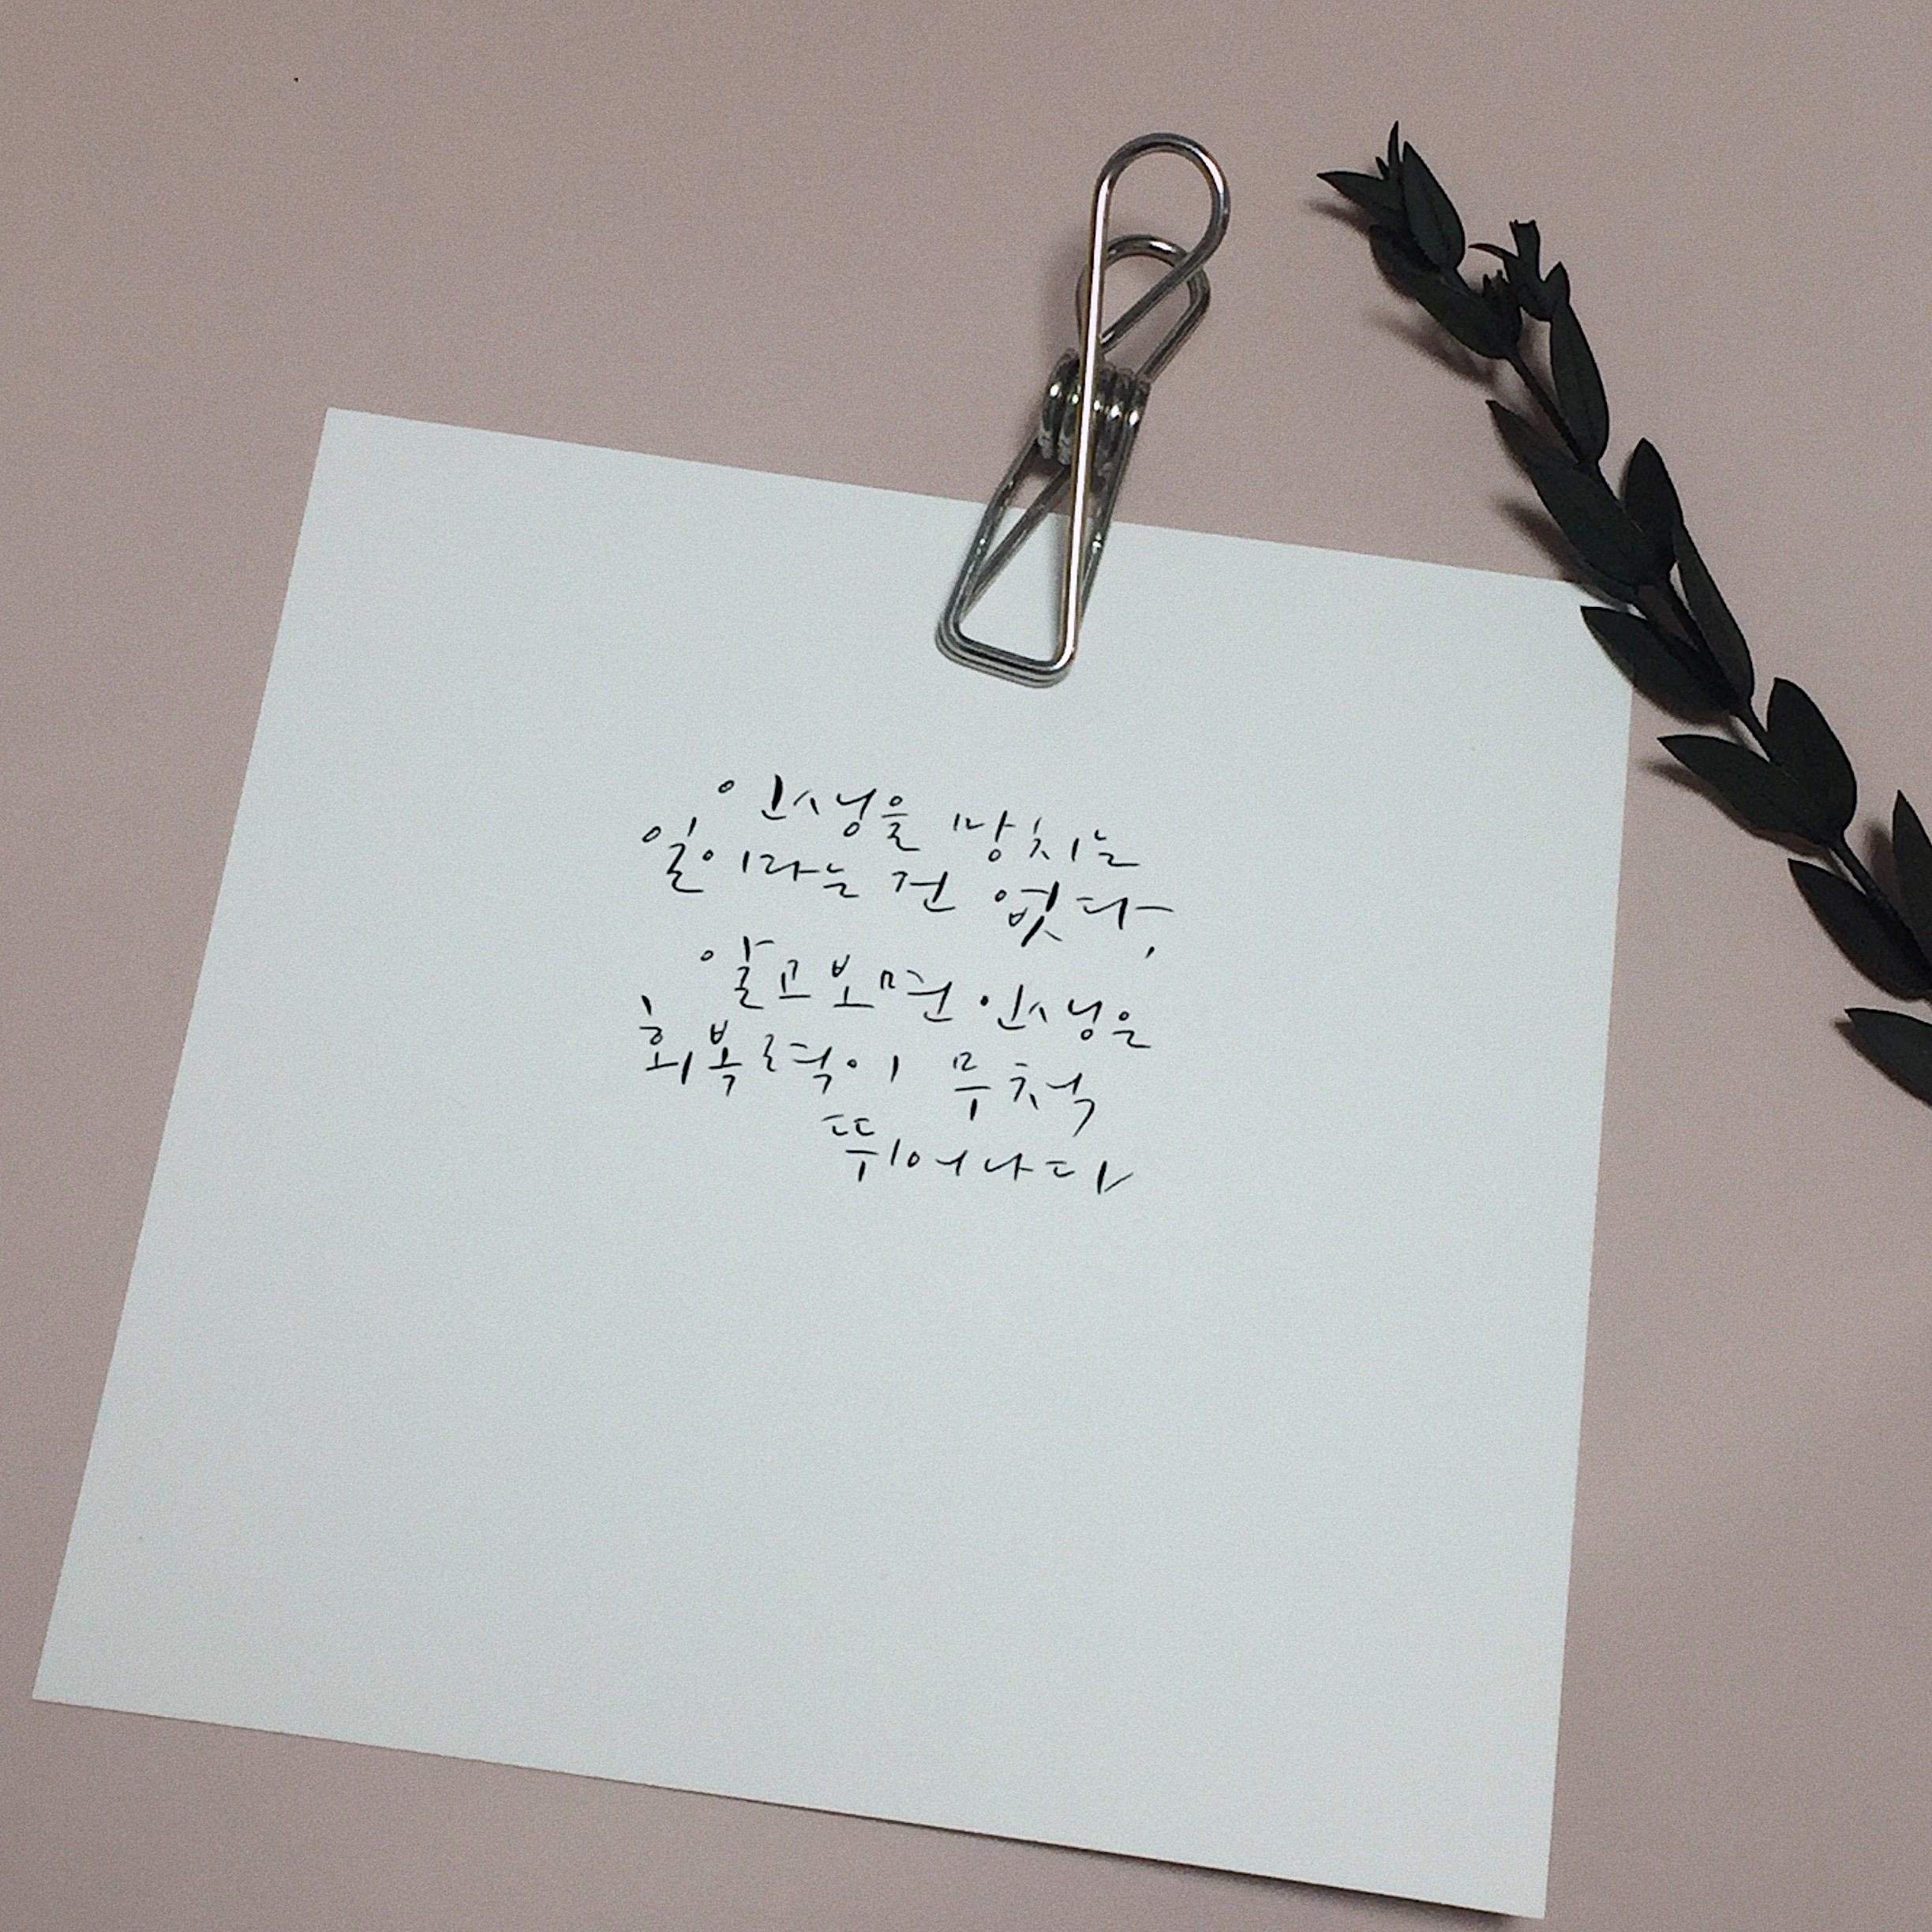 인생을 망치는
일이라는 건 없다,
알고보면 인생은
회복력이 무척
뛰어나다